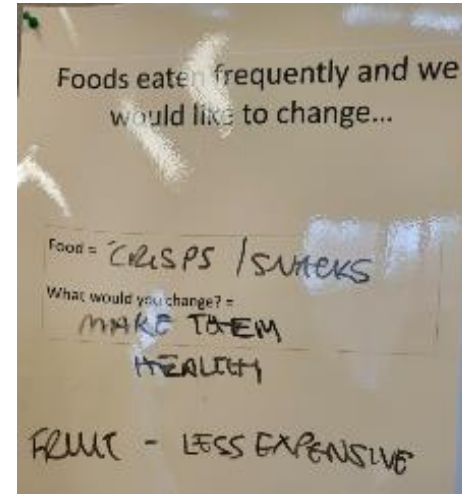 Foods eaten frequently and we
would like to change...
Food = CRISPS / SNACKS
What would you change? =
MAKE THEM
HEALTHY
FRUIT - LESS EXPENSIVE